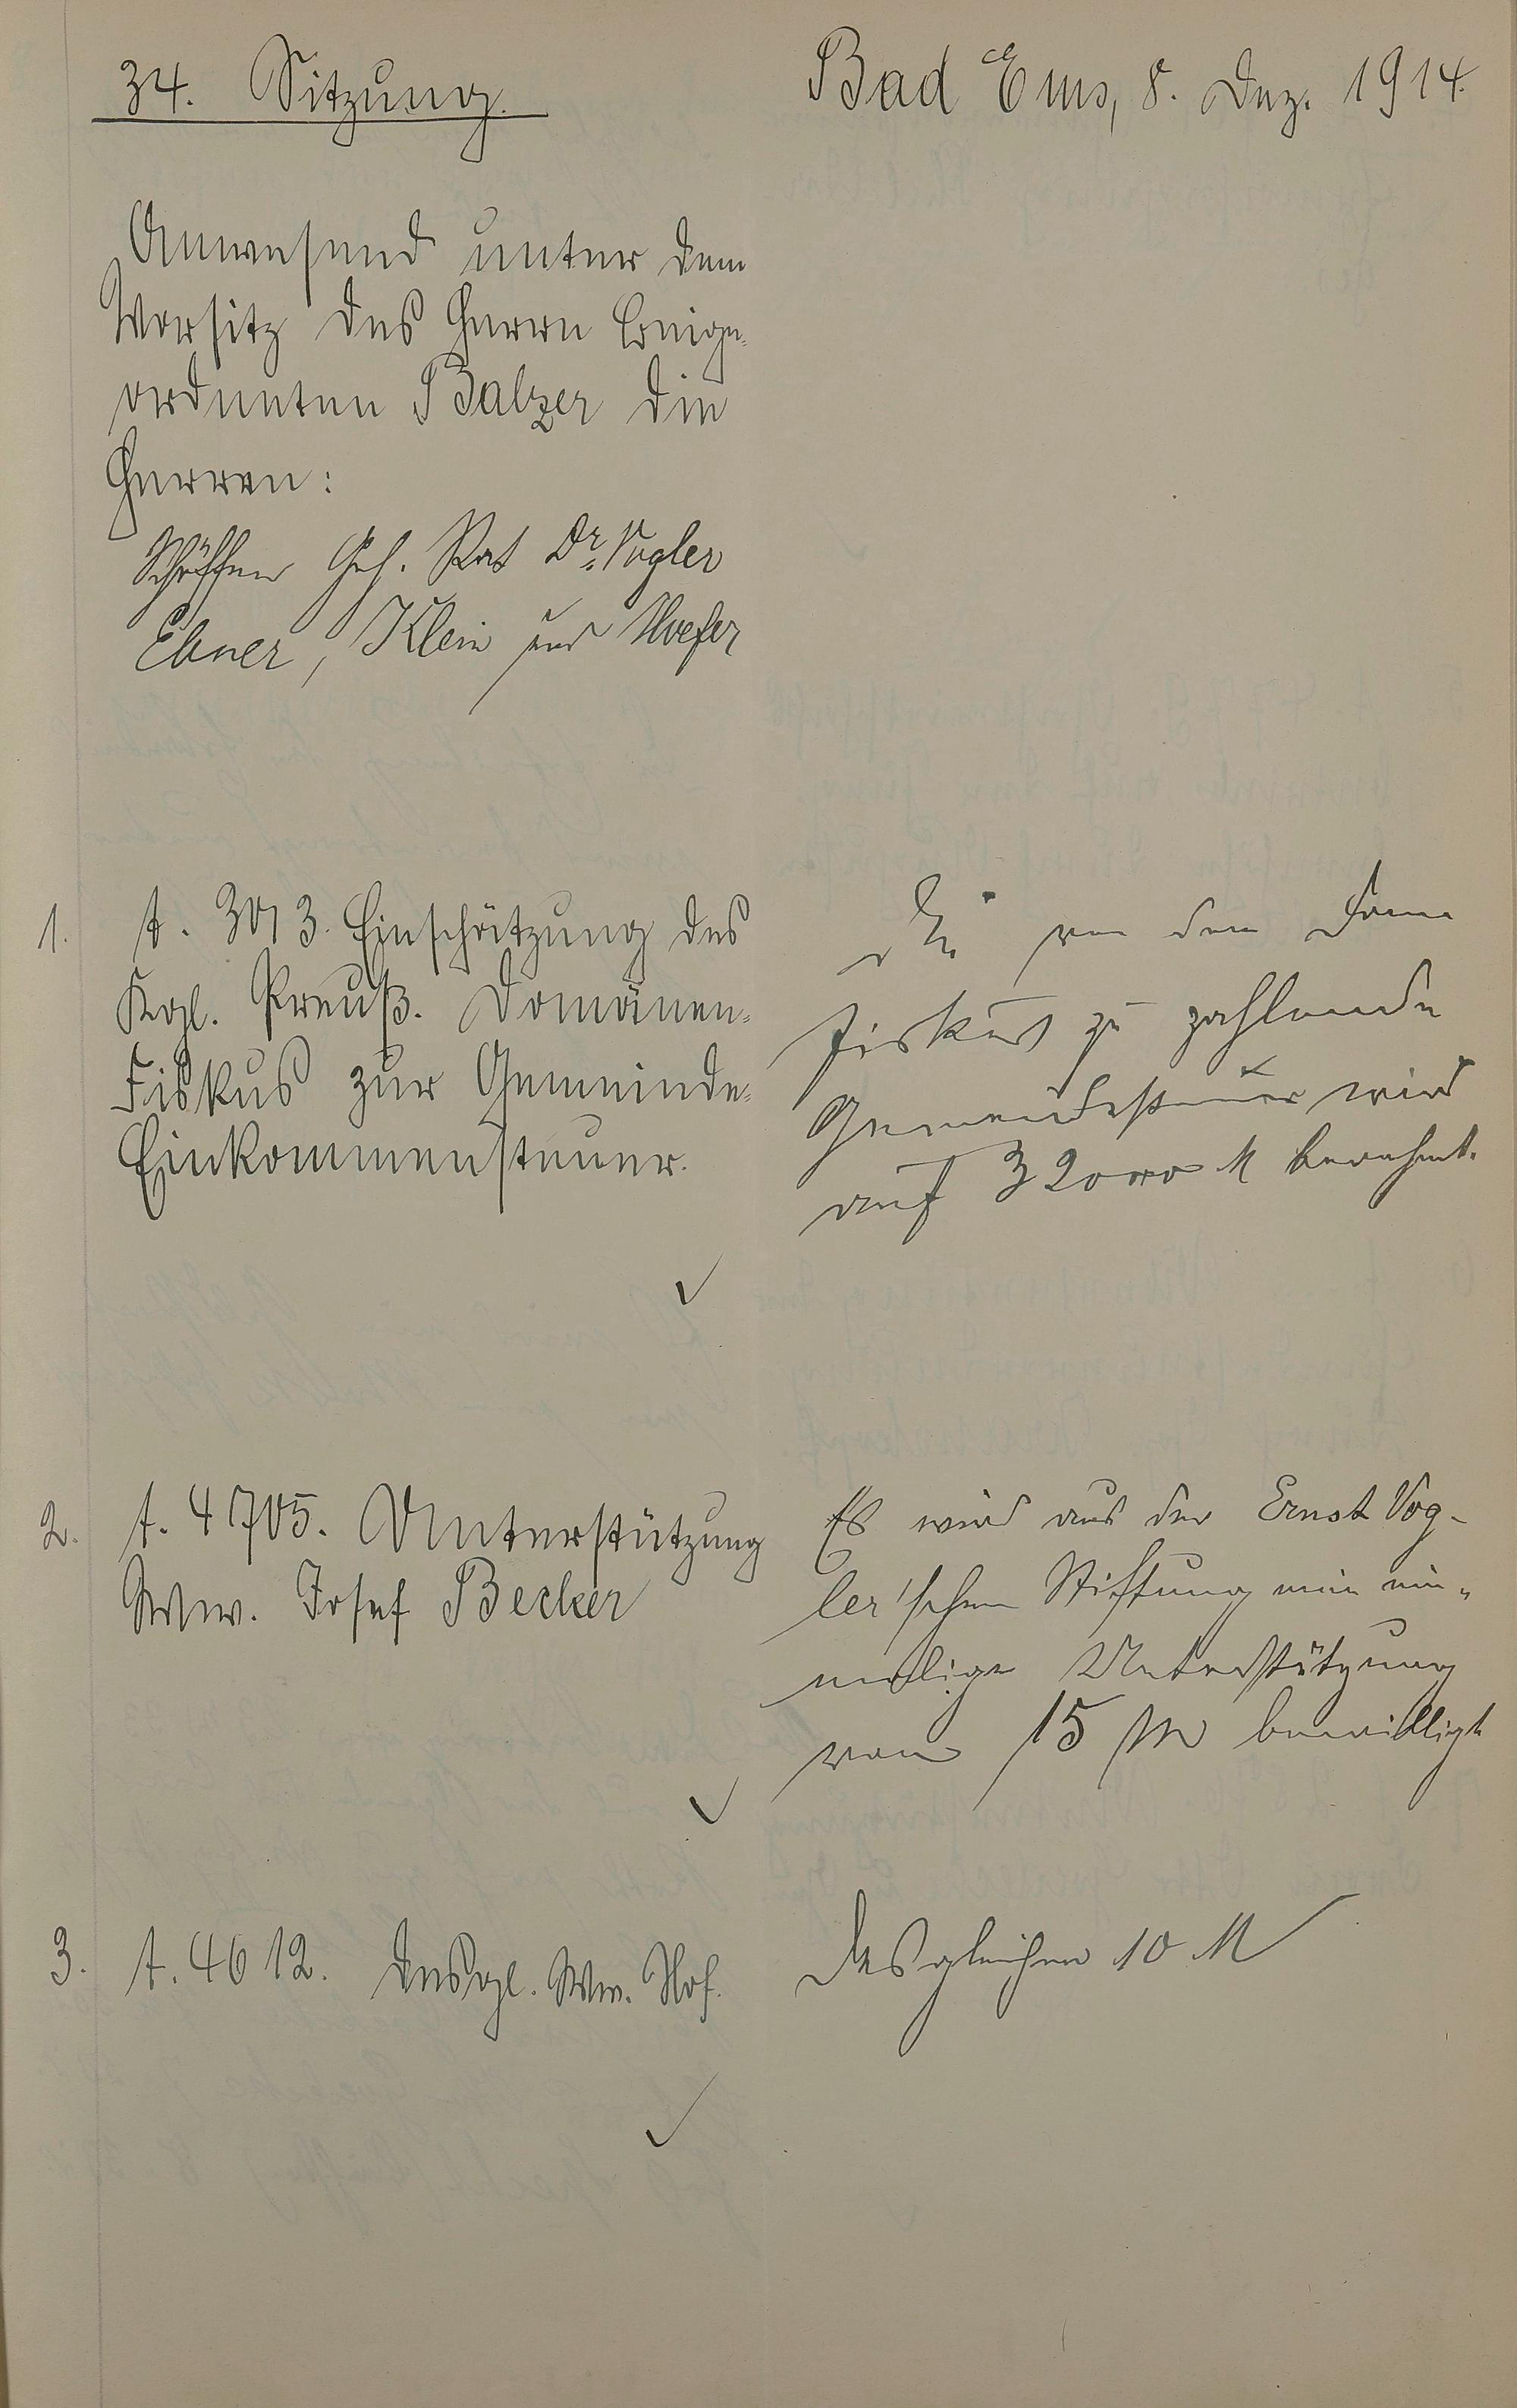 34. Sitzung.
Bad Ems, 8. Dez. 1914.
Anwesend unter dem
Vorsitz des Herrn Beige-
ordneten Balzer die
Herren:
Schöffen Geh. Rat Dr. Vogler
Ebner, Klein und Hoefer
1. t. 3013. Einschätzung des
Kgl. Preuß. Domänen-
Fiskus zur Gemeinde-
Einkommensteuer.
Die von dem Domä
Fiskus zu zahlende
Gemeindesteuer wird
auf 32000 M berechnet.
2. t. 4705. Unterstützung
Ww. Josef Becker
Es wird aus der Ernst Vog-
ler'schen Stiftung eine ein-
malige Unterstützung
von 15 M bewilligt
3. t. 4612. Desgl. Ww. Hof.
Desgleichen 10 M